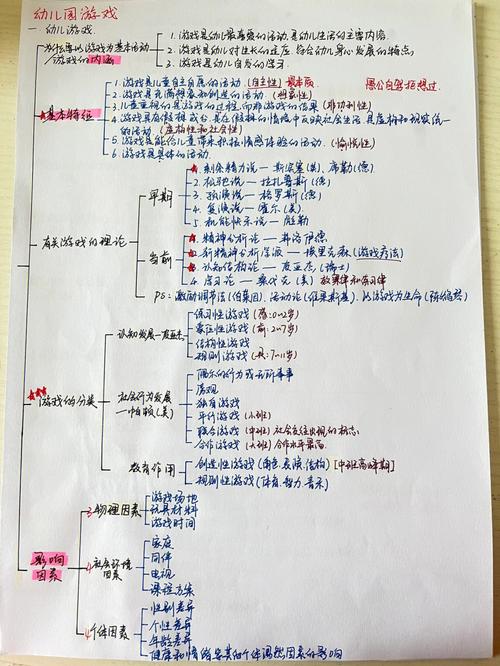 幼儿园游戏
一、幼儿游戏
为什么要以游戏为基本活动
游戏的内涵
1. 游戏是幼儿最喜爱的活动,是幼儿生活的主要内容
2. 游戏是幼儿对生长的适应,符合幼儿身心发展的特点
3. 游戏是幼儿自发的学习
基本特征
1. 游戏是儿童自主自愿的活动(自主性)
愚公自驾拒想过
2. 游戏是充满想象和创造的活动(想象性)
3. 儿童重视的是游戏的过程,而非游戏的结果(非功利性)
4. 游戏具有假想成份,是在假想的情境中反映社会生活,是虚构和现实统一
的活动(虚构性和社会性)
5. 游戏是能给儿童带来积极情感体验的活动(愉悦性)
6. 游戏是具体的活动
有关游戏的理论
早期
1. 剩余精力说—斯宾塞(英)、席勒(德)
2. 松弛说—拉扎鲁斯(德)
3. 预演说—格罗斯(德)
4. 复演说—霍尔(美)
5. 机能快乐说—彪勒
当前
1. 精神分析论—弗洛伊德
2. 新精神分析学派—埃里克森(游戏疗法)
3. 认知结构论—皮亚杰(瑞士)
4. 学习论—桑代克(美) 效果律和练习律
PS: 激励调节法(伯莱因)、活动论(维果斯基)、以游戏为生命(陈鹤琴)
游戏的分类
认知发展—皮亚杰
练习性游戏(感:0-2岁)
象征性游戏(前:2-7岁)
结构性游戏
规则游戏(具:7-11岁)
社会行为发展
—帕顿(美)
偶然的行为或无所事事
旁观
独自游戏
平行游戏(小班)
联合游戏(中班)社会交往出现的标志
合作游戏(大班)合作水平最高
教育作用
创造性游戏(角色、表演、结构)[中班高峰期]
规则性游戏(体育、智力、音乐)
影响
因素
3 物理因素
游戏场地
玩具材料
游戏时间
4 社会环境
因素
家庭
同伴
电视
课程方案
4 个体因素
性别差异
个性差异
年龄差异
健康和情绪等其他个体偶然因素的影响